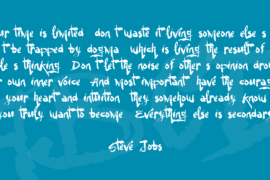 ur time is limited don t waste it living someone else s
t be trapped by dogma which is living the result of
le s thinking Don t let the noise of other s opinion dro
r own inner voice And most important have the courag
your heart and intuition they somehow already know
you truly want to become Everything else is secondar
Steve Jobs